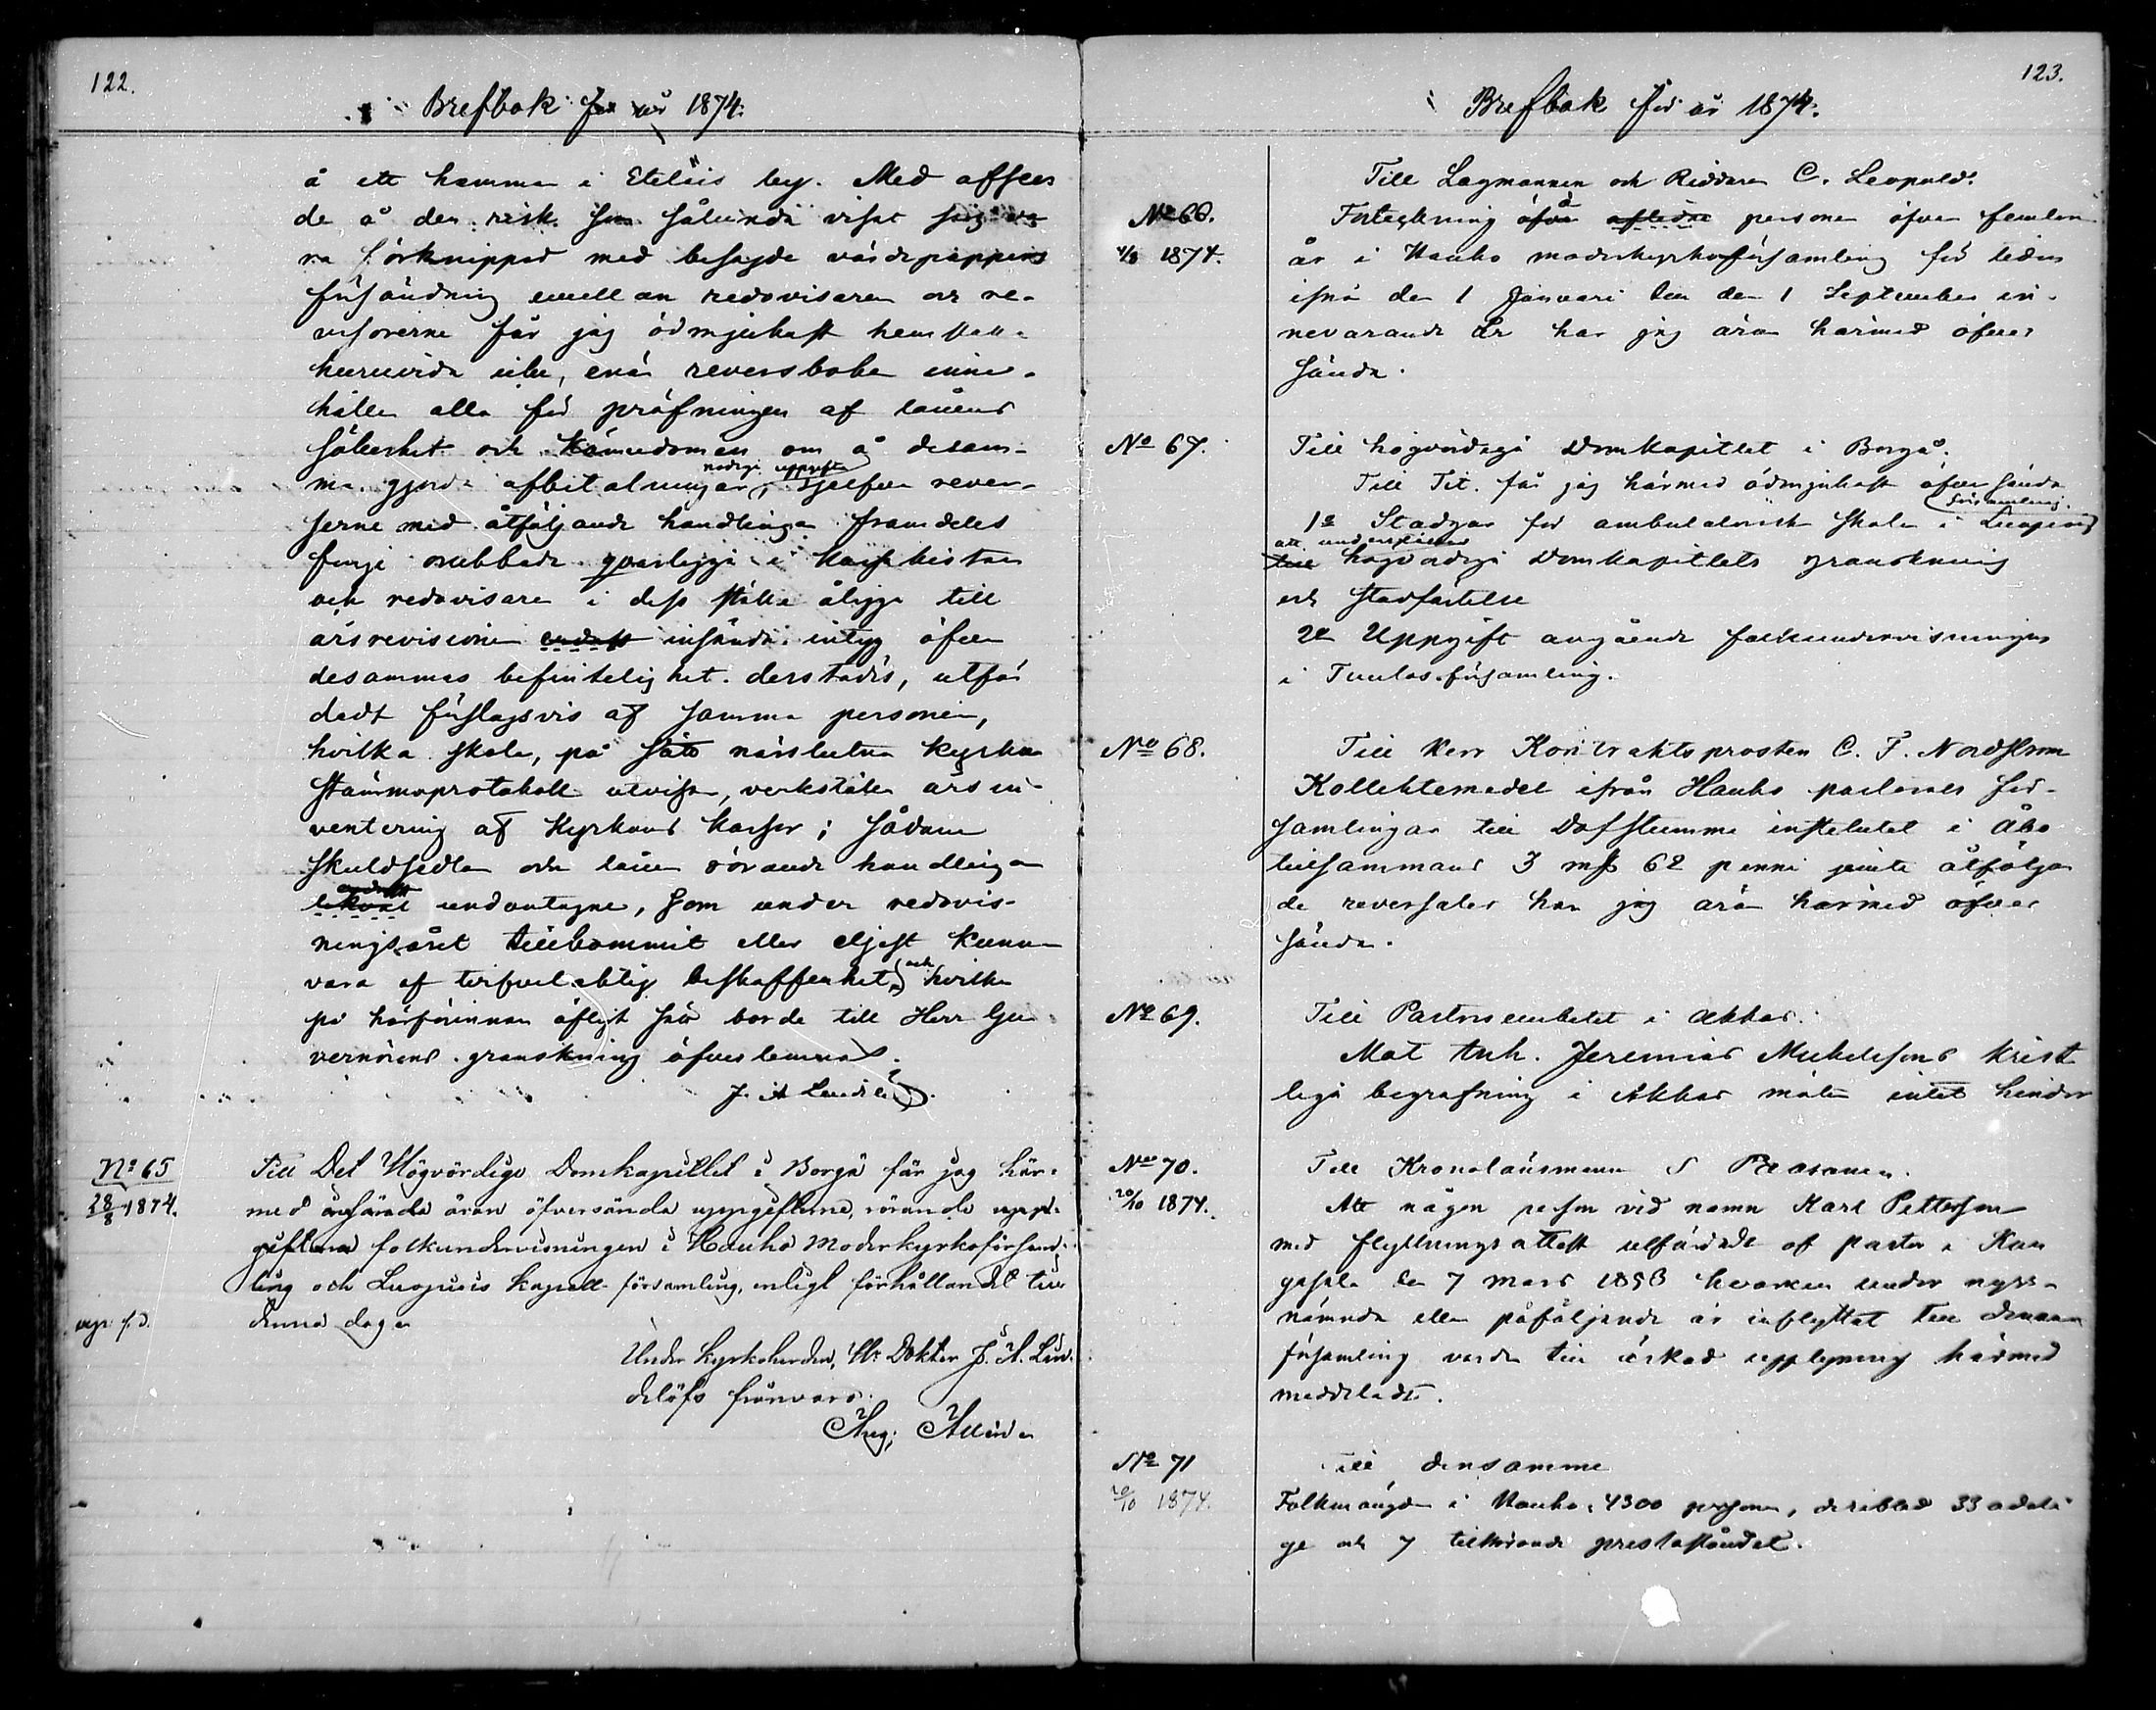 122.
Brefbok för år 1874.
å ett hemman i Eteläis by. Med afseen
de å den risk som sålunda visat sig va
ra förknippad med besagde värdepappers
försändning emellan redovisaren och re-
visorerne får jag ödmjukast hemställa
huruvida icke, enär reversboken inne-
håller alla för pröfningen af lånens
säkerhet och kännedomen om å desam-
ma gjorda afbetalningar nödiga uppgifter, sjelfva rever-
serne med åtföljande handlingar framdeles
finge orubbade qvarligga i kassakistan
och redovisaren i dess ställe ålägges till
årsrevisionen endast insända intyg öfver
desammas befintelighet derstädes, utfär
dadt förslagsvis af samma personer,
hvilka skola, på sätt närslutne kyrko
stämmoprotokoll utvisar, verkställa årsin-
ventering af Kyrkans kassor; sådane
skuldsedlar och lånen rörande handlingar
endast undantagne, som under redovis-
ningsåret tillkommit eller eljest kunna
vara af tvifvelaktig beskaffenhet, och hvilka
på härförinnan öfligt sätt borde till Herr Gu
vernörens granskning öfverlemnas.
J. A. Lindelöf.
No 65
28/8 1874.
Till Det Högvördige Domkapitlet i Borgå får jag här-
med äran öfversända uppgifterne, rörande
folkundervisningen i Hauho Moderkyrkoförsam-
ling och Luopiois kapell-församling, enligt förhållandet till
denna dag.
Under Kyrkoherden, Hr Doktor J. A. Lin-
delöfs frånvaro:
Aug. Allén
123.
Brefbok för år 1874.
No 66.
4/9 1874.
Till Lagmannen och Riddaren C. Leopold.
Förteckning å aflidne personer öfver femton
år i Hauho moderkyrkoförsamling för tiden
ifrån den 1 Januari till den 1 September in-
nevarande år har jag äran härmed öfver
sända.
No 67.
Till högvördiga Domkapitlet i Borgå.
Till Tit. får jag härmed ödmjukast öfversända
1o Stadgar för ambulatorisk skola i Luopiois församling
att underställas högvördiga Domkapitlets granskning
och stadfästelse
2o Uppgift angående folkundervisningen
i Tuulos församling.
No 68.
Till Herr Kontraktsprosten C. F. Nordström
Kollektemedel ifrån Hauho pastorats för-
samlingar till Döfstumme institutet i Åbo
tillsammans 3 mk 62 penni jemte åtföljan
de reversaler har jag äran härmed öfver
sända.
No 69.
Till Pastorsembetet i Akkas.
Mot Enk. Jeremias Mickelssons krist
liga begrafning i Akkas möter intet hinder
No 70.
20/10 1874.
Till Kronolänsmannen S Paasonen.
Att någon person vid namn Karl Pettersson
med flyttningsattest utfärdadt af pastor i Kan
gasala den 7 Mars 1858 hvarken under nyss-
nämnda eller påföljande år inflyttat till denna
församling varder till äskad upplysning härmed
meddeladt.
No 71
20/10 1874.
Till densamme
Folkmängden i Hauho: 4300 personer, deribland 33 adeli
ge och 7 tillhörande prestaståndet.